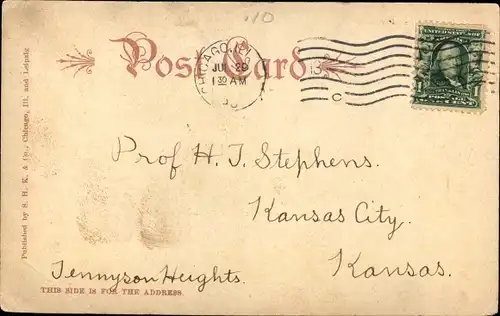 10
Post Card
CHICAGO, ILL.
JUL 29
1 30 AM
C
1
1
Prof H. T. Stephens.
Kansas City.
Kansas.
Tennyson Heights.
THIS SIDE IS FOR THE ADDRESS.
Published by S. H. K. & Co., Chicago, Ill. and Leipzig